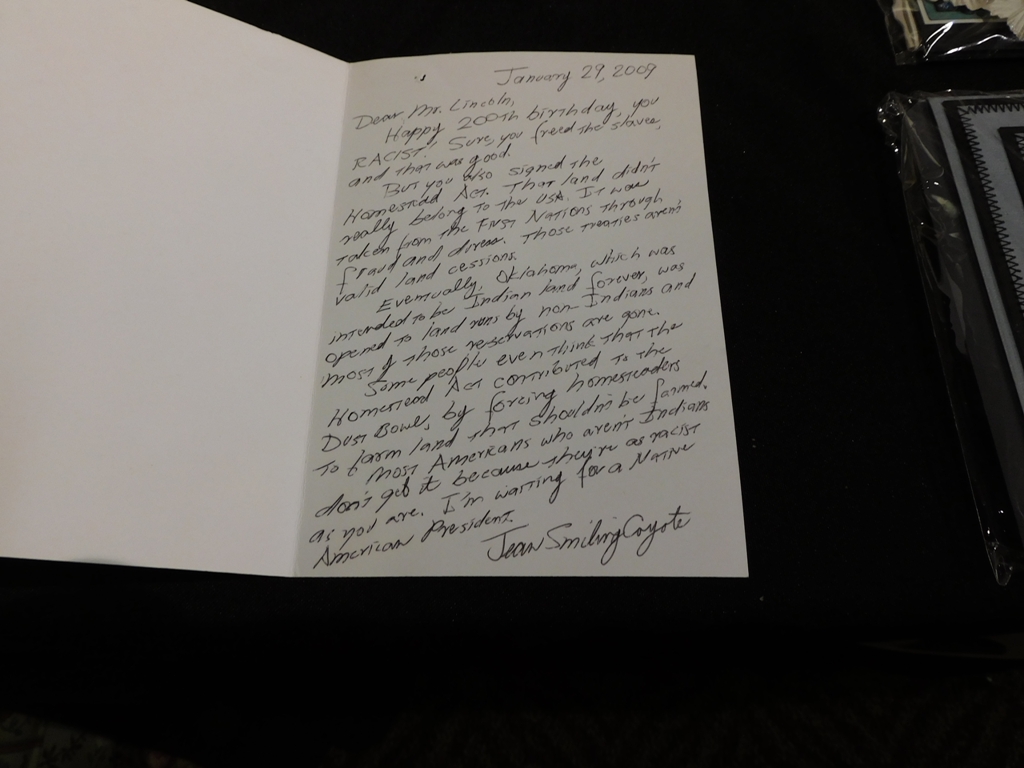 January 29, 2009
Dear Mr. Lincoln,
Happy 200th birthday, you
RACIST! Sure, you freed the slaves,
and that was good.
But you also signed the
Homestead Act. That land didn't
really belong to the USA. It was
taken from the First Nations through
fraud and duress. Those treaties aren't
valid land cessions.
Eventually, Oklahoma, which was
intended to be Indian land forever, was
opened to land runs by non-Indians and
most of those reservations are gone.
Some people even think that the
Homestead Act contributed to the
Dust Bowls by forcing homesteaders
to farm land that shouldn't be farmed.
Most Americans who aren't Indians
don't get it because they're as racist
as you are. I'm waiting for a Native
American President.
Jean SmilingCoyote